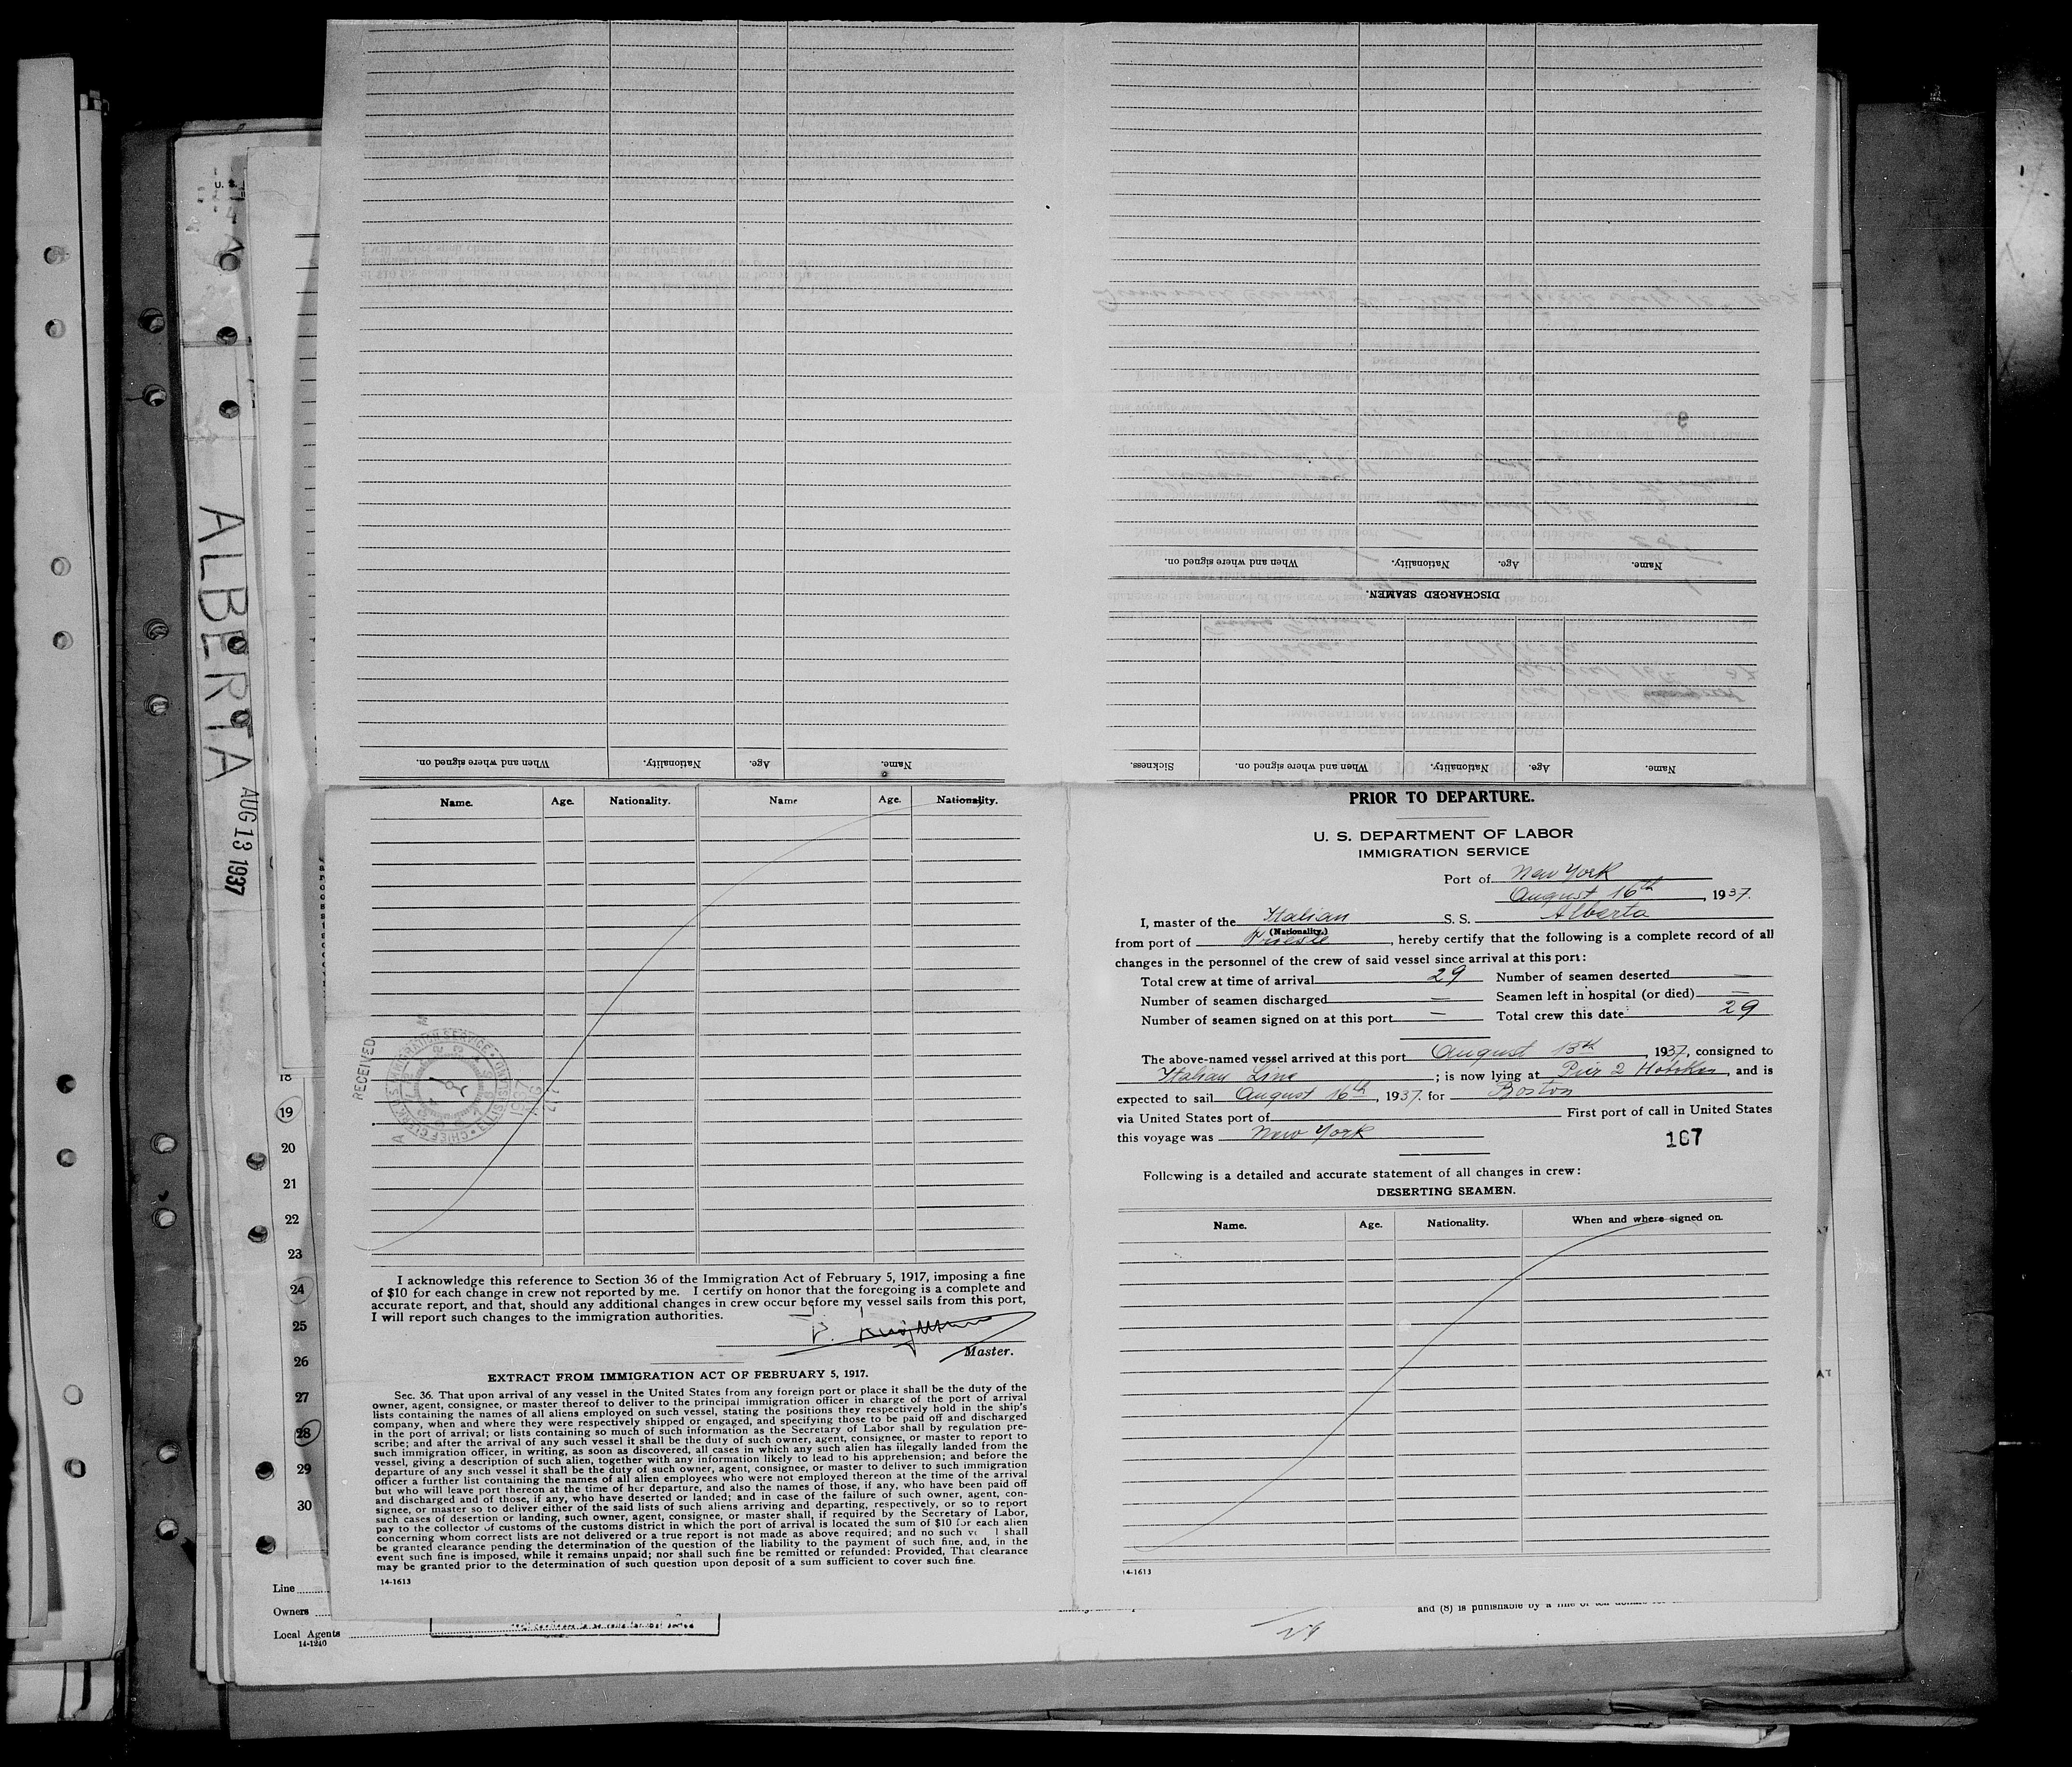 ALBERTA AUG 13 1937
When and where signed on.
Nationality.
Age.
Name.
When and where signed on.
Nationality.
Age.
Name.
DISCHARGED SEAMEN.
Sickness.
When and where signed on.
Nationality.
Age.
Name.
Name. Age. Nationality. Name Age. Nationality.
RECEIVED
18
19
20
21
22
23
24
25
26
27
28
29
30
I acknowledge this reference to Section 36 of the Immigration Act of February 5, 1917, imposing a fine
of $10 for each change in crew not reported by me. I certify on honor that the foregoing is a complete and
accurate report, and that, should any additional changes in crew occur before my vessel sails from this port,
I will report such changes to the immigration authorities.
Master.
EXTRACT FROM IMMIGRATION ACT OF FEBRUARY 5, 1917.
Sec. 36. That upon arrival of any vessel in the United States from any foreign port or place it shall be the duty of the
owner, agent, consignee, or master thereof to deliver to the principal immigration officer in charge of the port of arrival
lists containing the names of all aliens employed on such vessel, stating the positions they respectively hold in the ship's
company, when and where they were respectively shipped or engaged, and specifying those to be paid off and discharged
in the port of arrival; or lists containing so much of such information as the Secretary of Labor shall by regulation pre-
scribe; and after the arrival of any such vessel it shall be the duty of such owner, agent, consignee, or master to report to
such immigration officer, in writing, as soon as discovered, all cases in which any such alien has illegally landed from the
vessel, giving a description of such alien, together with any information likely to lead to his apprehension; and before the
departure of any such vessel it shall be the duty of such owner, agent, consignee, or master to deliver to such immigration
officer a further list containing the names of all alien employees who were not employed thereon at the time of the arrival
but who will leave port thereon at the time of her departure, and also the names of those, if any, who have been paid off
and discharged and of those, if any, who have deserted or landed; and in case of the failure of such owner, agent, con-
signee, or master so to deliver either of the said lists of such aliens arriving and departing, respectively, or so to report
such cases of desertion or landing, such owner, agent, consignee, or master shall, if required by the Secretary of Labor,
pay to the collector of customs of the customs district in which the port of arrival is located the sum of $10 for each alien
concerning whom correct lists are not delivered or a true report is not made as above required; and no such ve l shall
be granted clearance pending the determination of the question of the liability to the payment of such fine, and, in the
event such fine is imposed, while it remains unpaid; nor shall such fine be remitted or refunded: Provided, That clearance
may be granted prior to the determination of such question upon deposit of a sum sufficient to cover such fine.
14-1613
Line
Owners
Local Agents
14-1240
PRIOR TO DEPARTURE.
U. S. DEPARTMENT OF LABOR
IMMIGRATION SERVICE
Port of New York
August 16th, 1937.
I, master of the Italian S. S. Alberta
(Nationality.)
from port of Trieste, hereby certify that the following is a complete record of all
changes in the personnel of the crew of said vessel since arrival at this port:
Total crew at time of arrival 29 Number of seamen deserted —
Number of seamen discharged — Seamen left in hospital (or died) —
Number of seamen signed on at this port — Total crew this date 29
The above-named vessel arrived at this port August 13th, 1937, consigned to
Italian Line; is now lying at Pier 2 Hoboken, and is
expected to sail August 16th, 1937. for Boston
via United States port of First port of call in United States
this voyage was New York
167
Following is a detailed and accurate statement of all changes in crew:
DESERTING SEAMEN.
Name. Age. Nationality. When and where signed on.
14-1613